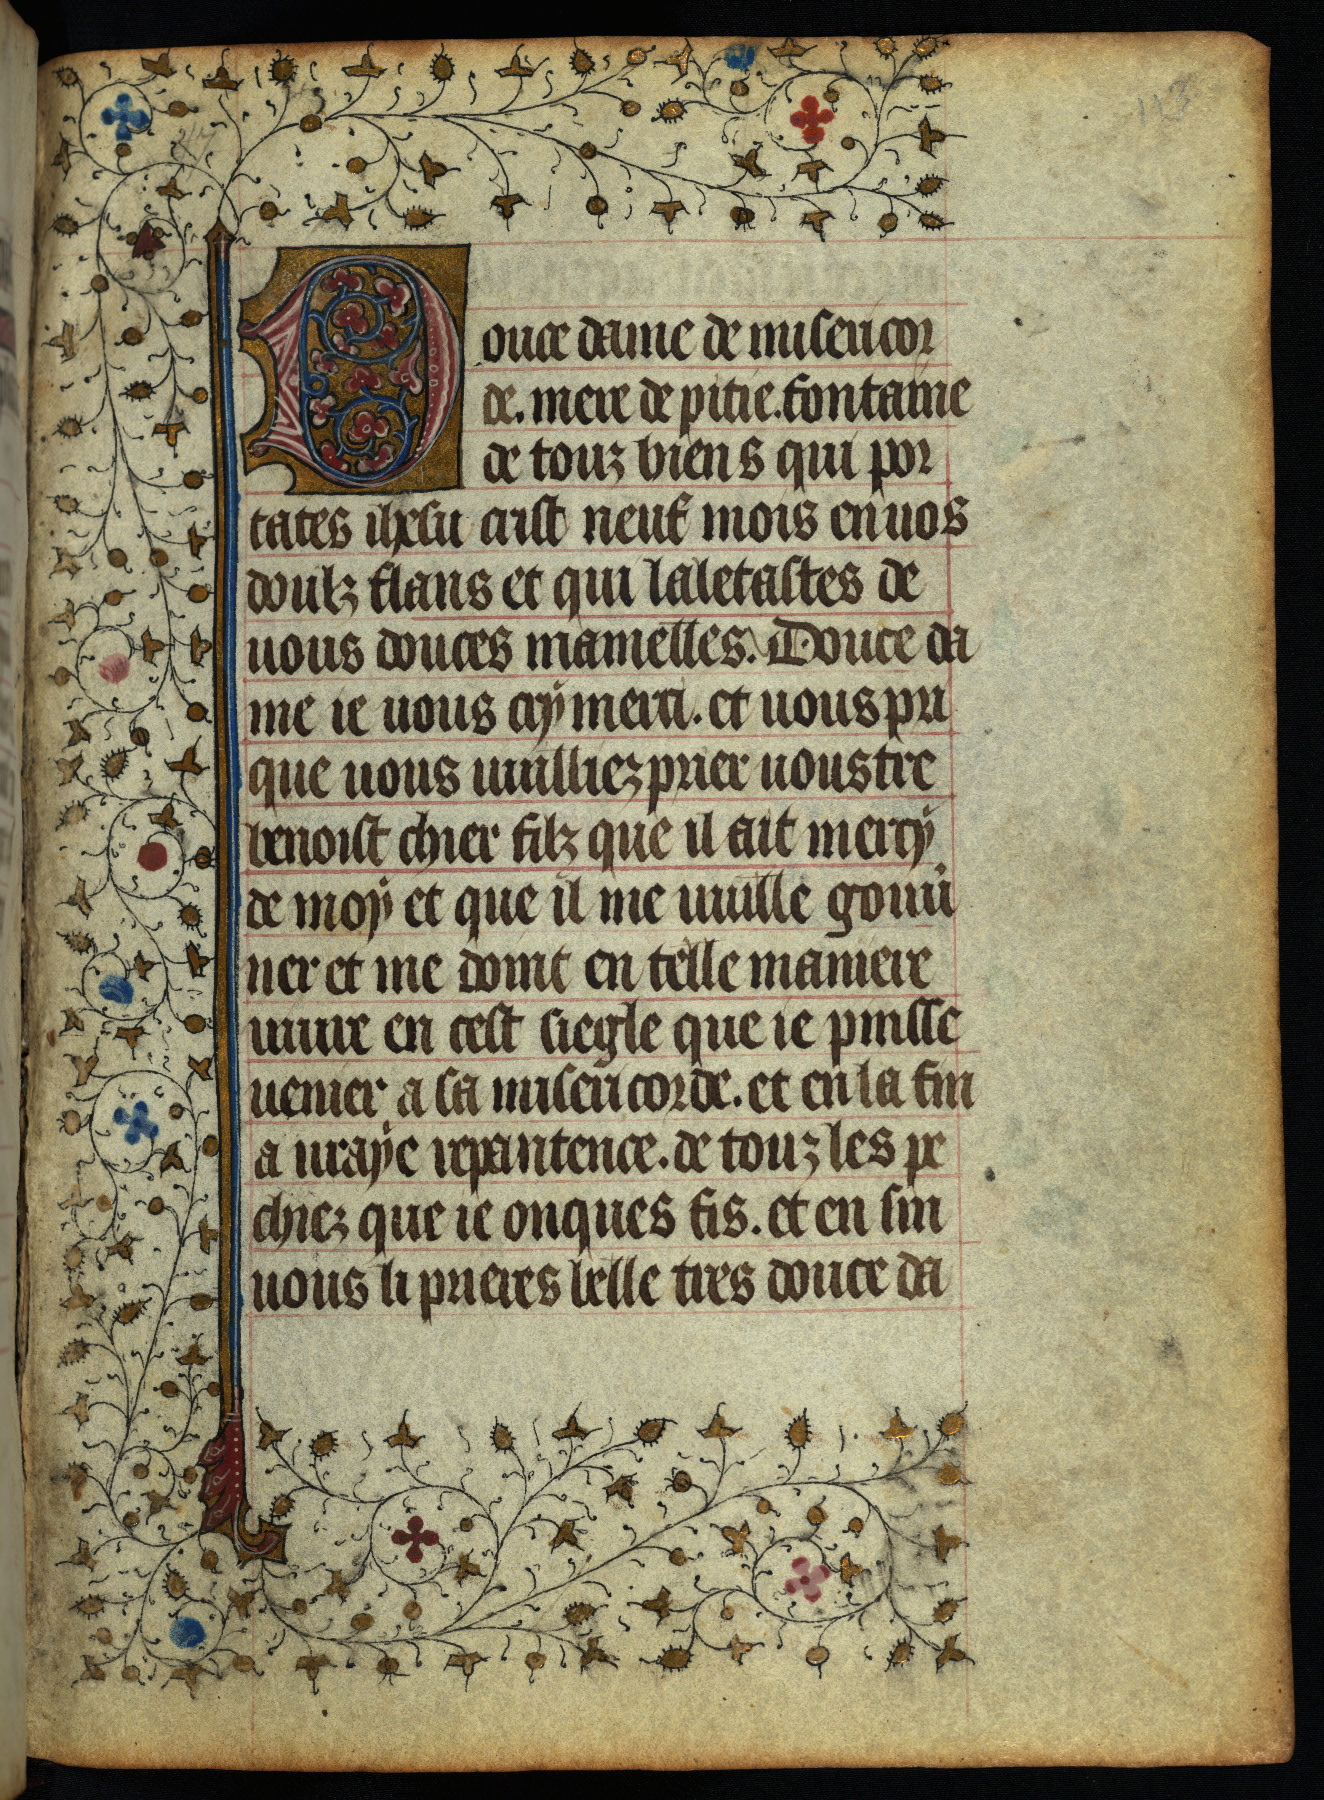 Douce dame de misericor
de. mere de pitie. fontaine
de touz biens qui por
tates ihesu crist neuf mois en uos
doulz flans et qui laletastes de
uous douces mamelles. Douce da
me ie uous crÿ merci. et uous pri
que uous uuilliez prier uoustre
benoist chier filz que il ait mercÿ
de moÿ et que il me uuille gouu̇
ner et me doint en telle maniere
uiure en cest siegle que ie puisse
uenier a sa misericorde. et en la fin
a uraÿe repantence. de touz les pe
chiez que ie onques fis. et en sin
uous li prieres belle tres douce da